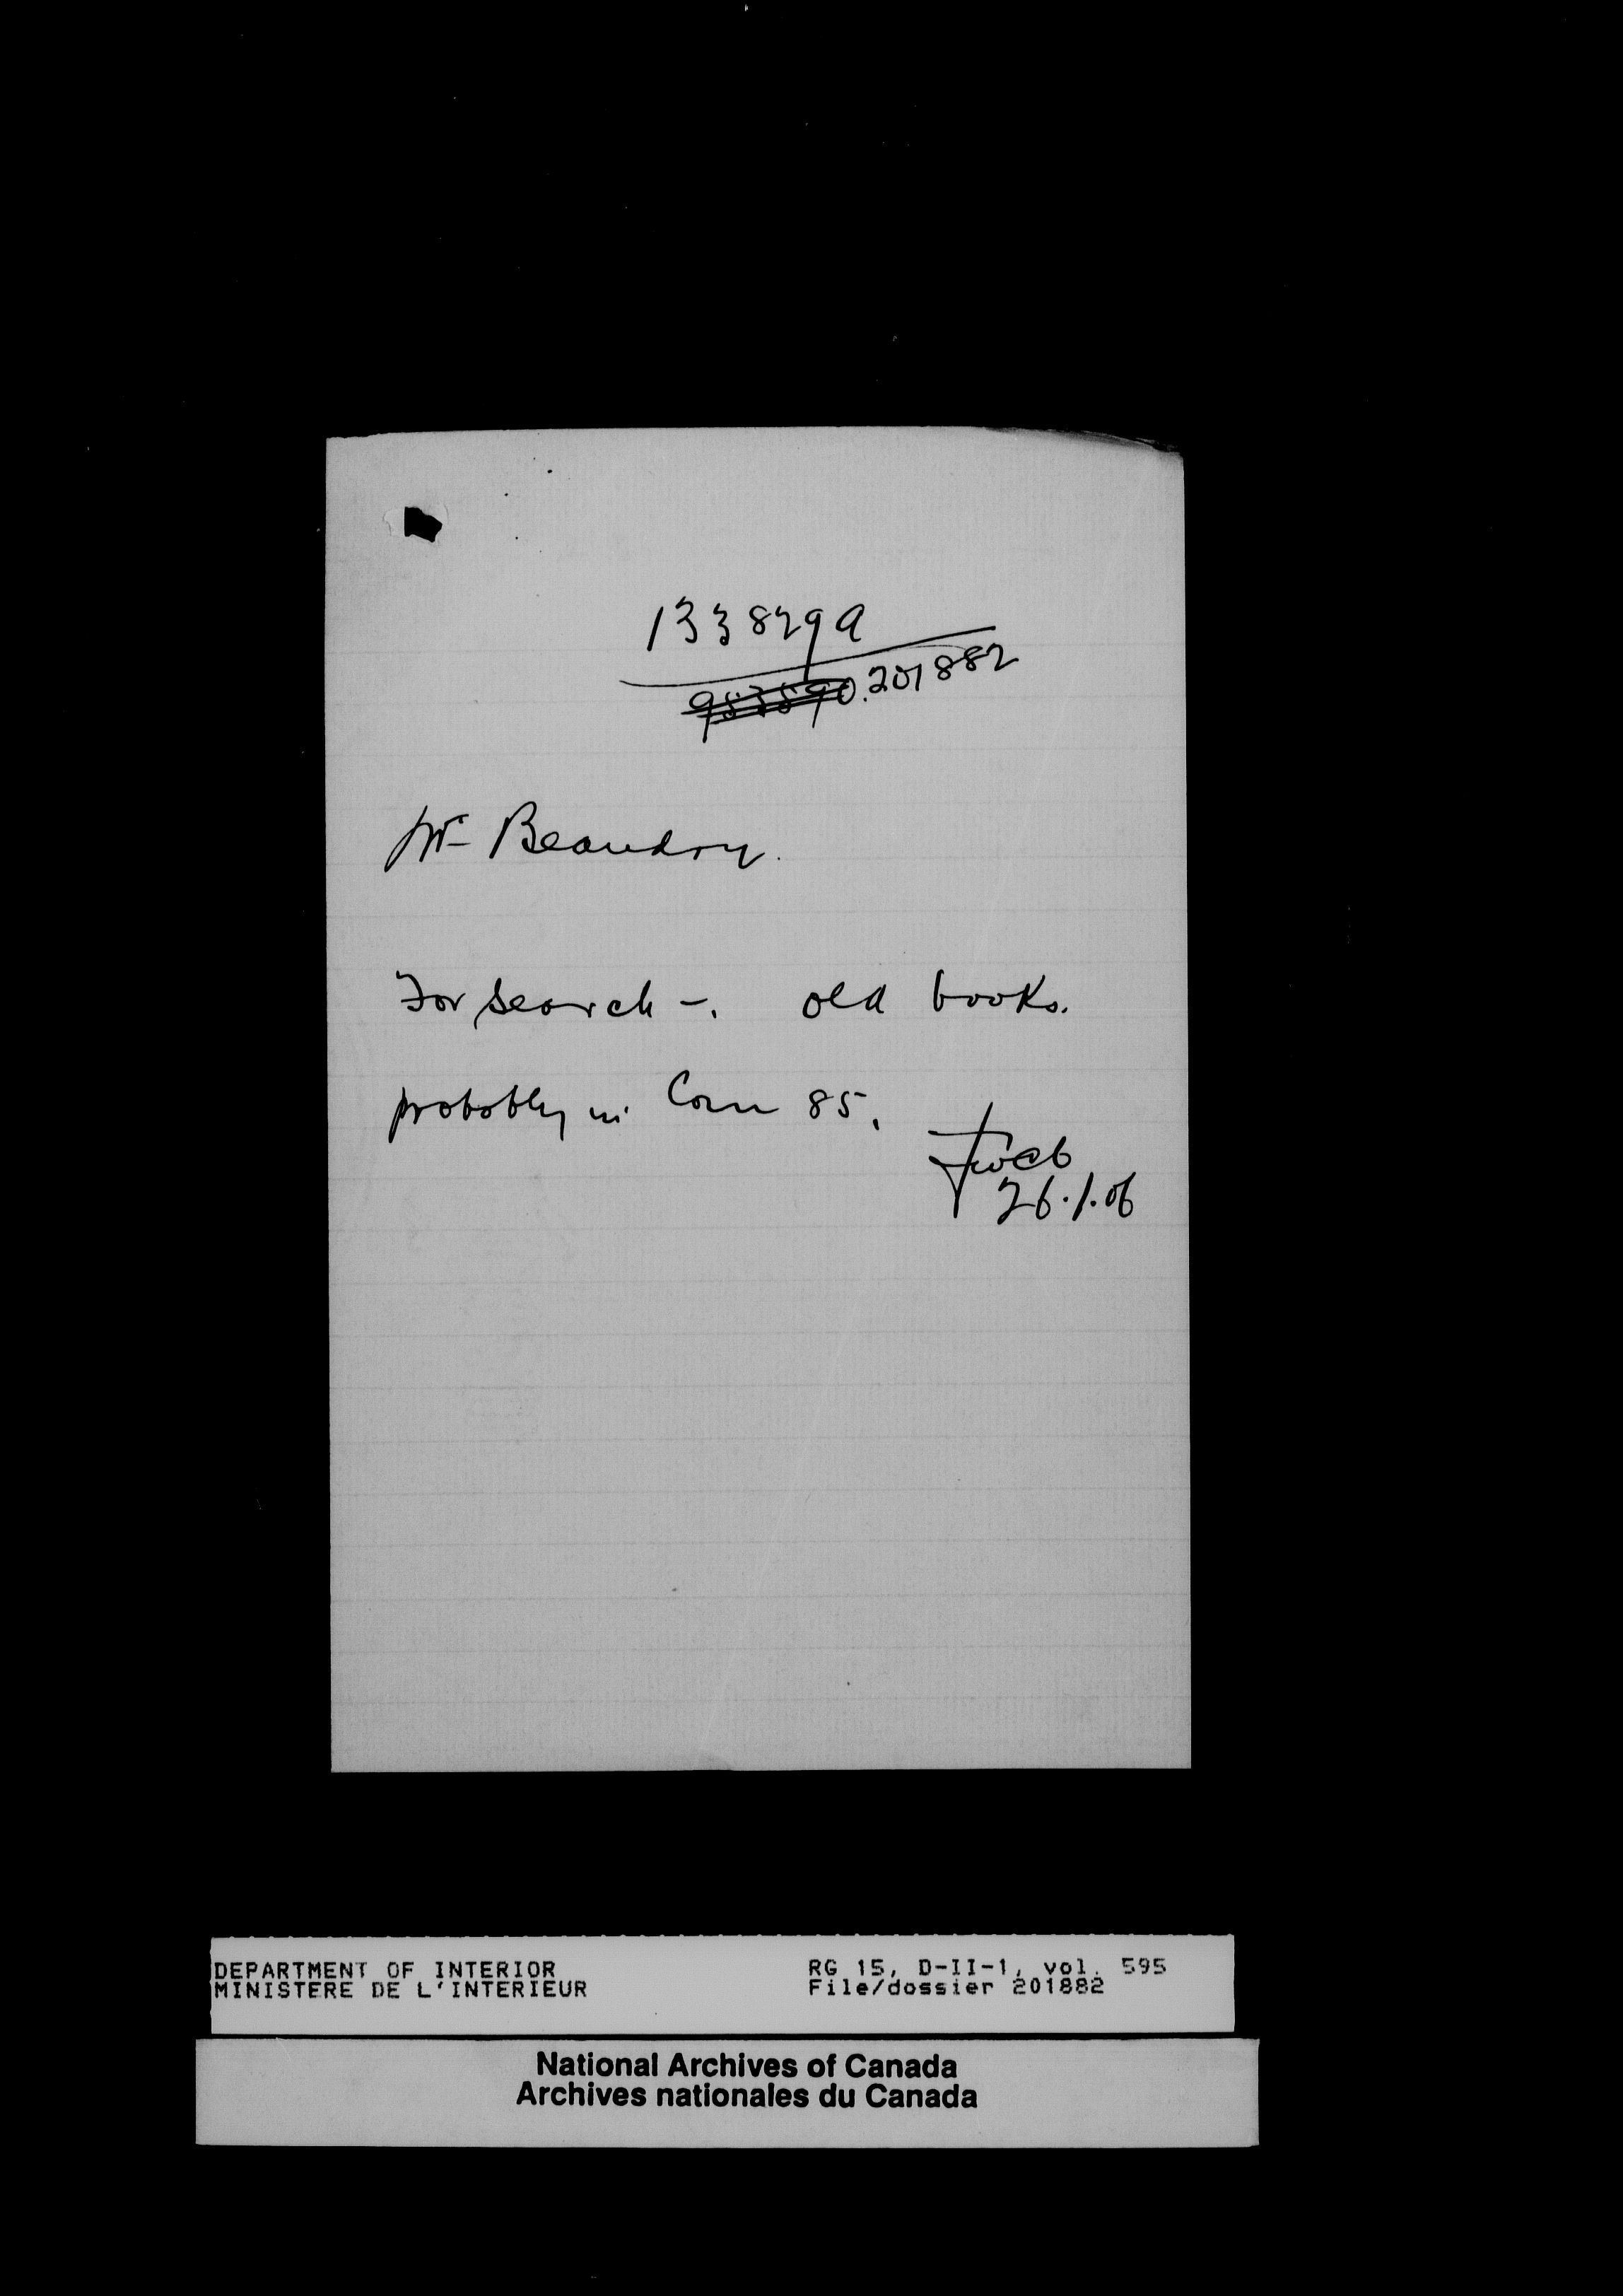 133829a
201882
Mr Beaudry.
For search -. old books.
probably in Com 85.
26.1.06
DEPARTMENT OF INTERIOR
MINISTERE DE L'INTERIEUR
RG 15, D-II-1, vol. 595
File/dossier 201882
National Archives of Canada
Archives nationales du Canada